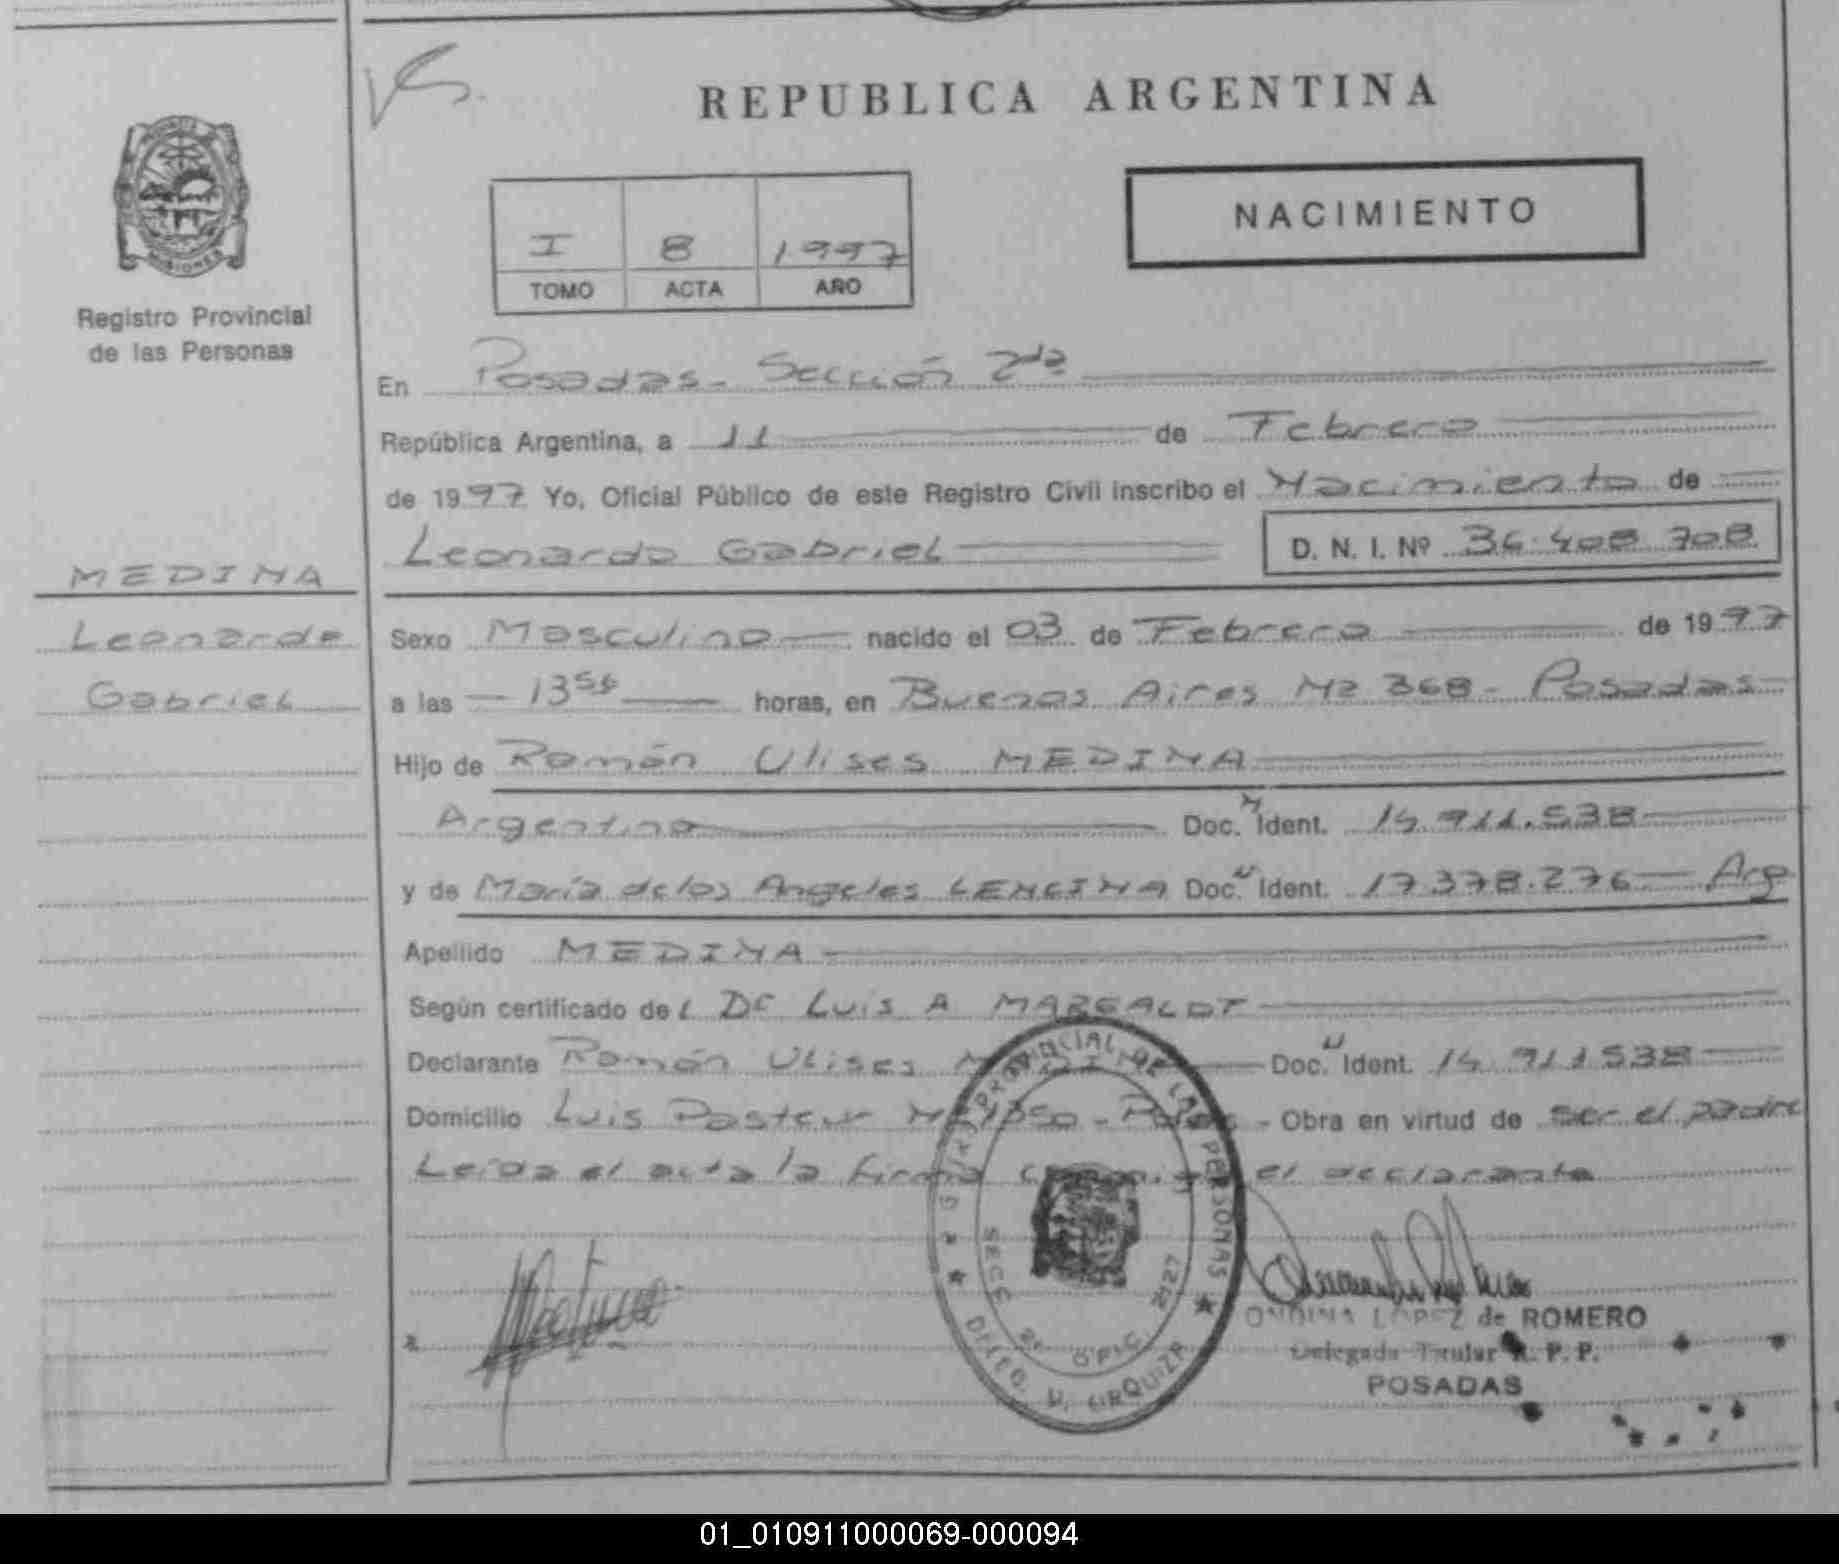 REPUBLICA ARGENTINA
MISIONES
Registro Provincial
de las Personas
NACIMIENTO
I 8 1997
TOMO ACTA AÑO
En Posadas - Sección 2da
República Argentina, a 11 de Febrero
de 1997 Yo, Oficial Público de este Registro Civil inscribo el Nacimiento de
Leonardo Gabriel D. N. I. Nº 36.408.708
MEDINA
Leonardo
Gabriel
Sexo Masculino nacido el 03 de Febrero de 1997
a las 13 horas, en Buenos Aires Nº 368 - Posadas
Hijo de Román Ulises MEDINA
Argentino Doc. N Ident. 14.911.538
y de María de los Angeles LENCINA Doc. N Ident. 17.378.276 - Arg
Apellido MEDINA
Según certificado del Dr Luis A
Declarante Román Ulises Doc. N Ident. 14.911.538
Domicilio Luis Pasteur - Obra en virtud de ser el padre
Leída el acta la firma el declarante
PROVINCIAL DE LAS PERSONAS
SECC 2ª OFIC. 2127
DPTO. U. URQUIZA
ONDINA LOPEZ de ROMERO
Delegada Titular R. P. P.
POSADAS
01_010911000069-000094